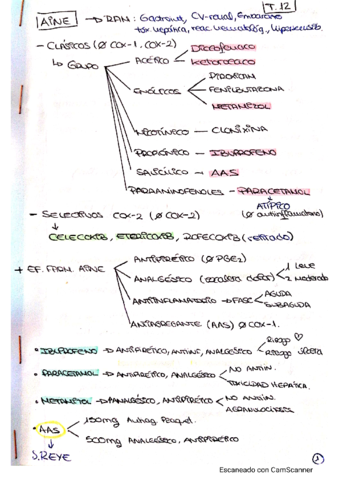 T.12
AINE → RAM: Gastroint, CV-renal, Embarazo
tox. hepática, reac. hematológ., hipersensib.
- Clásicos (Ø COX-1, COX-2)
↳ GRUPO
ACÉTICO
Diclofenaco
Ketorolaco
ENÓLICOS
PIROXICAM
FENILBUTAZONA
METAMIZOL
NICOTÍNICO — CLONIXINA
PROPIÓNICO — IBUPROFENO
SALICÍLICO — AAS
PARAAMINOFENOLES — PARACETAMOL
ATÍPICO
(Ø antiinflamatorio)
- SELECTIVOS COX-2 (Ø COX-2)
CELECOXIB, ETORICOXIB, ROFECOXIB (retirado)
+ EF. FARM. AINE
ANTIPIRÉTICO (Ø PGE2)
ANALGÉSICO (escalera dolor)
1 Leve
2 Moderado
ANTIINFLAMATORIO → FASE
AGUDA
SUBAGUDA
ANTIAGREGANTE (AAS) Ø COX-1.
• IBUPROFENO → ANTIPIRÉTICO, ANTIINF, ANALGÉSICO
Riesgo ♡
Riesgo úlcera
• PARACETAMOL → ANTIPIRÉTICO, ANALGÉSICO
NO ANTIIN.
TOXICIDAD HEPÁTICA.
• METAMIZOL → ANALGÉSICO, ANTIPIRÉTICO
NO ANTIIN.
AGRANULOCITOSIS.
• AAS
150mg Antiag Plaquet.
500mg ANALGÉSICO, ANTIPIRÉTICO
S. REYE
1
Escaneado con CamScanner